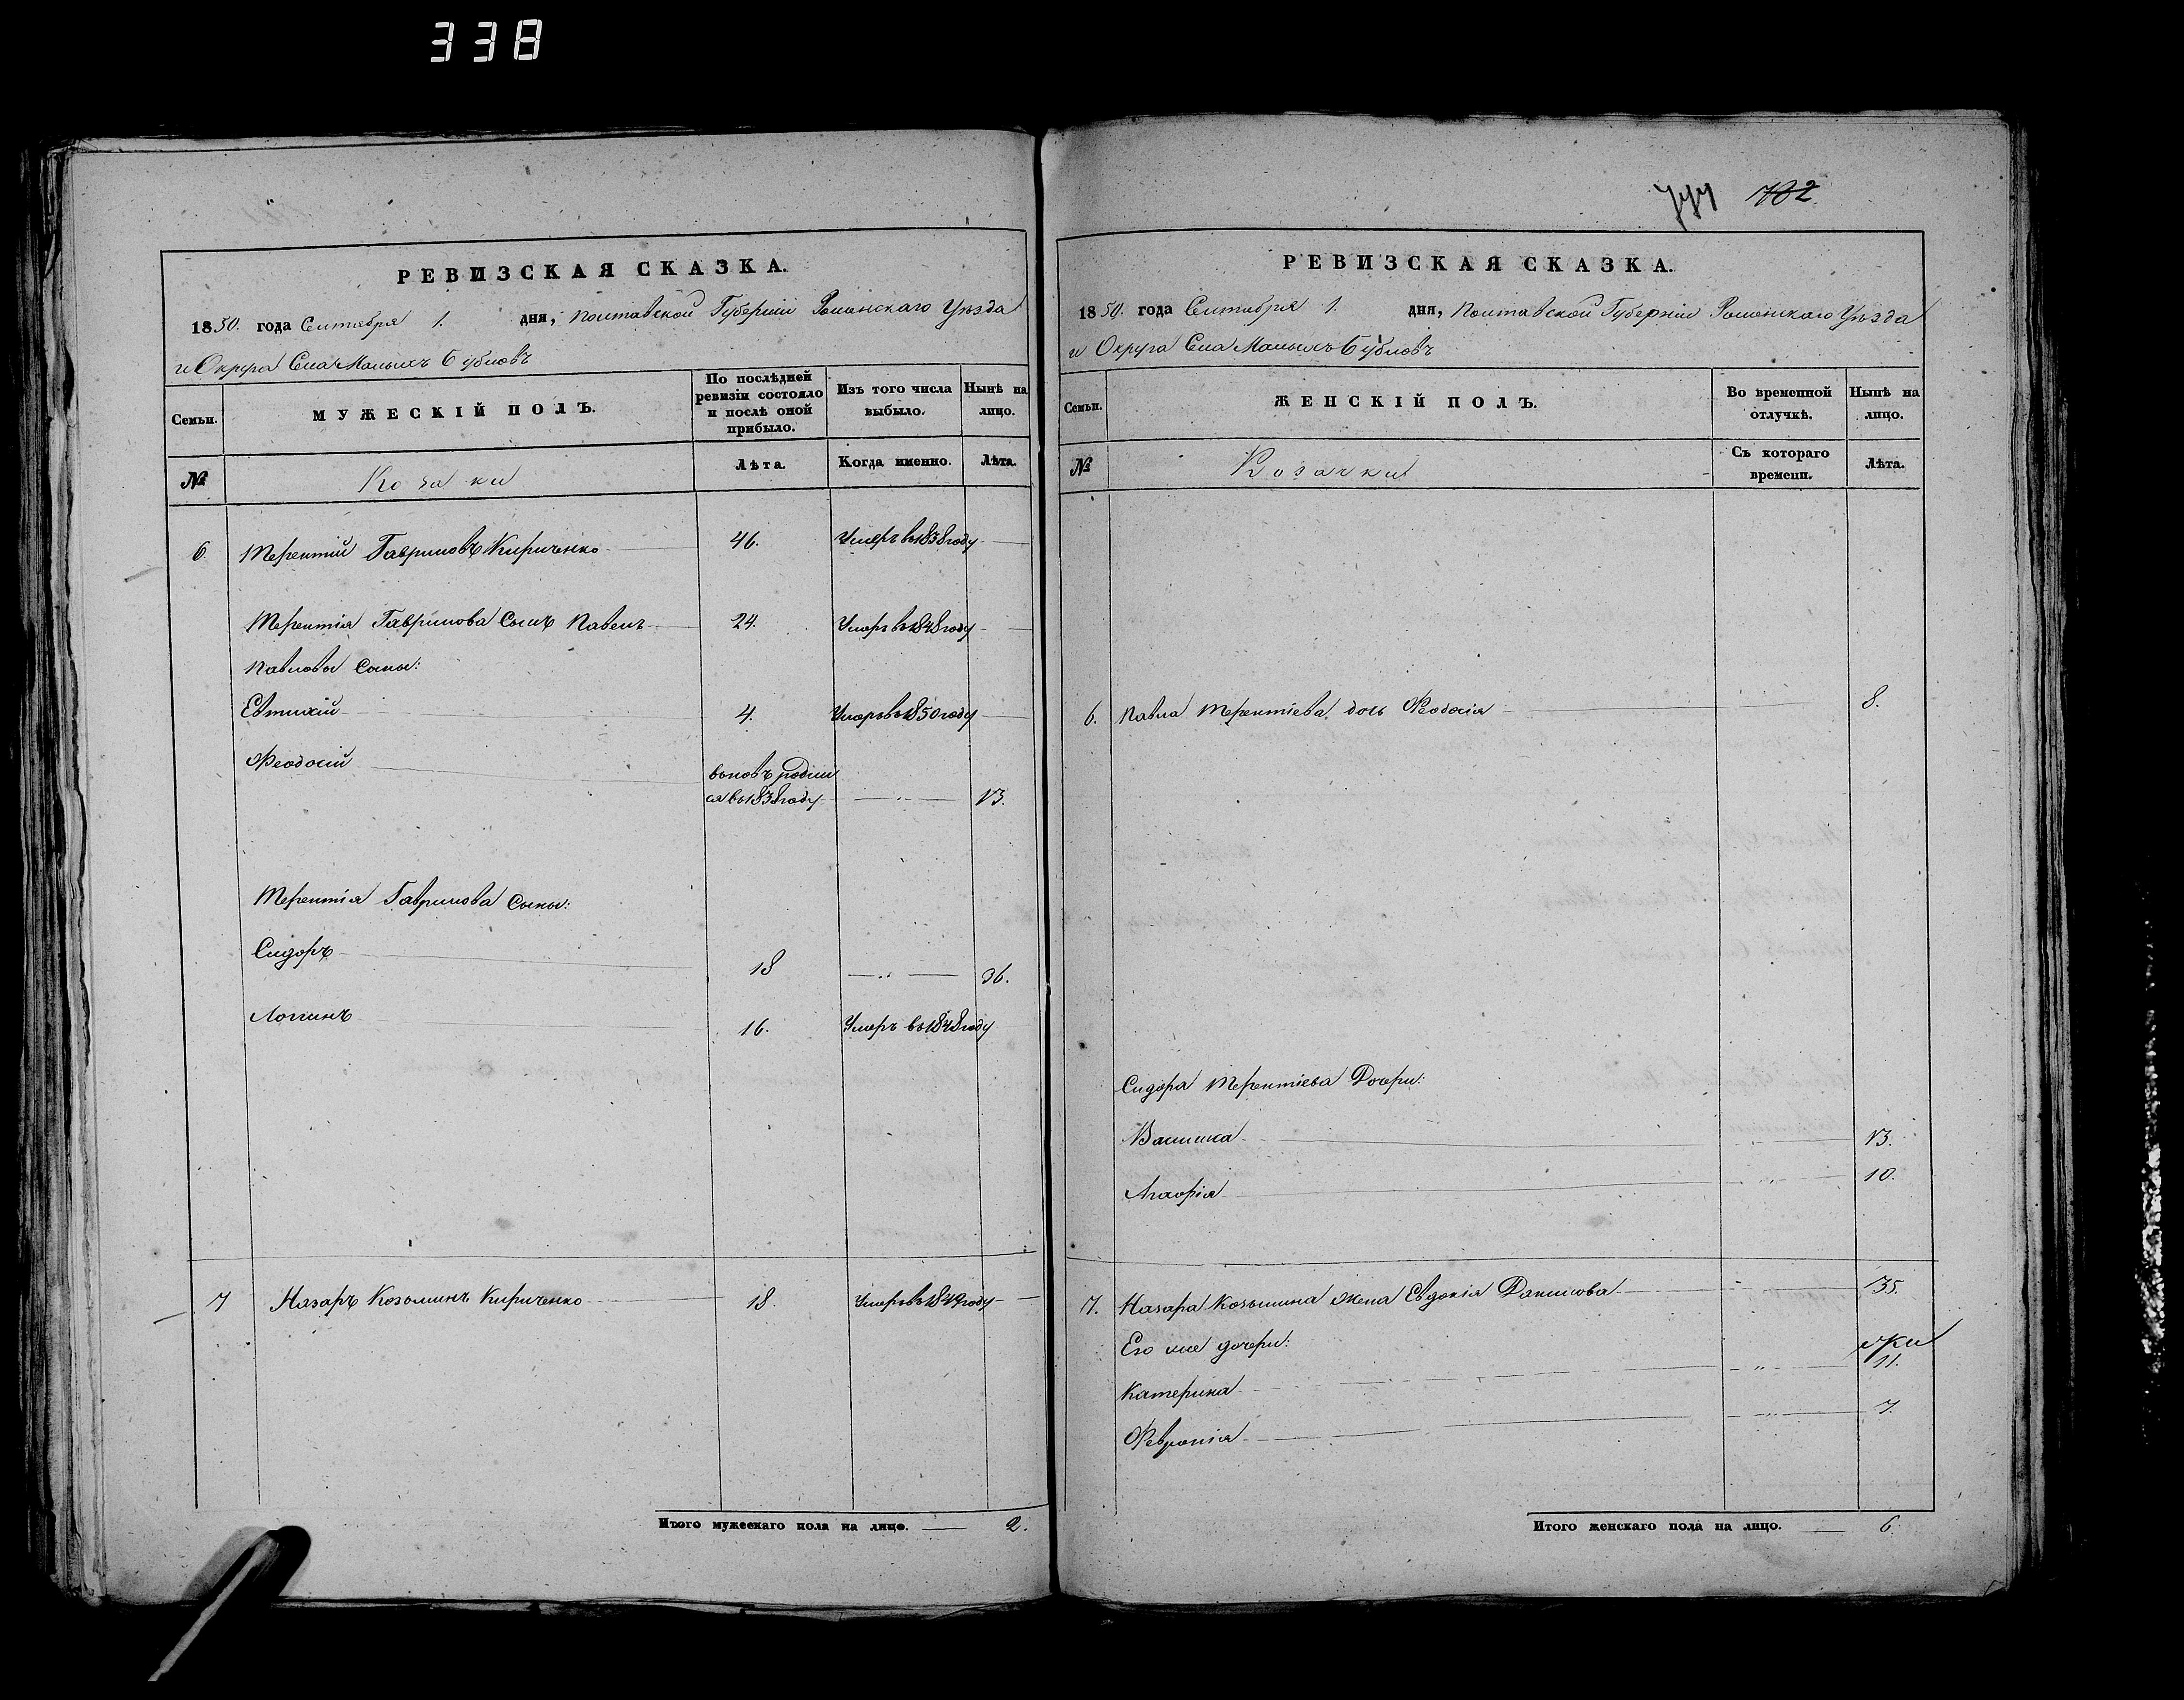 338
777 702
РЕВИЗСКАЯ СКАЗКА.
1850. года Сентября 1. дня, Полтавской Губерніи Роменскаго Уѣзда
и Округа Села Малыхъ Бубновъ
Семьи.
МУЖЕСКІЙ ПОЛЪ.
По послѣдней ревизіи состояло и послѣ оной прибыло.
Изъ того числа выбыло.
Нынѣ на лицо.
№
Козаки
Лѣта.
Когда именно.
Лѣта.
6. Терентій Гавриловъ Кириченко 46. Умеръ въ 1838 году
Терентія Гаврилова Сынъ Павелъ 24. Умеръ въ 1848 году
Павловы Сыны:
Евтихій 4. Умеръ въ 1850 году
Феодосій вновь родил
ся въ 1838 году — " — 13.
Терентія Гаврилова Сыны:
Сидоръ 18 — " — 36.
Логгинъ 16. Умеръ въ 1848 году
7 Назаръ Козьминъ Кириченко 18. Умеръ въ 1849 году
Итого мужескаго пола на лицо. — 2.
РЕВИЗСКАЯ СКАЗКА.
1850. года Сентября 1. дня, Полтавской Губерніи Роменскаго Уѣзда
и Округа Села Малыхъ Бубновъ
Семьи.
ЖЕНСКІЙ ПОЛЪ.
Во временной отлучкѣ.
Нынѣ на лицо.
№
Козачки
Съ котораго времени.
Лѣта.
6. Павла Терентіева дочь Феодосія 8.
Сидора Терентіева Дочери:
Василиса 13.
Агафія 10.
7. Назара Козьмина жена Евдокія Данилова 35.
Его же дочери:
Катерина 11.
Февронія 7.
Итого женскаго пола на лицо. — 6.